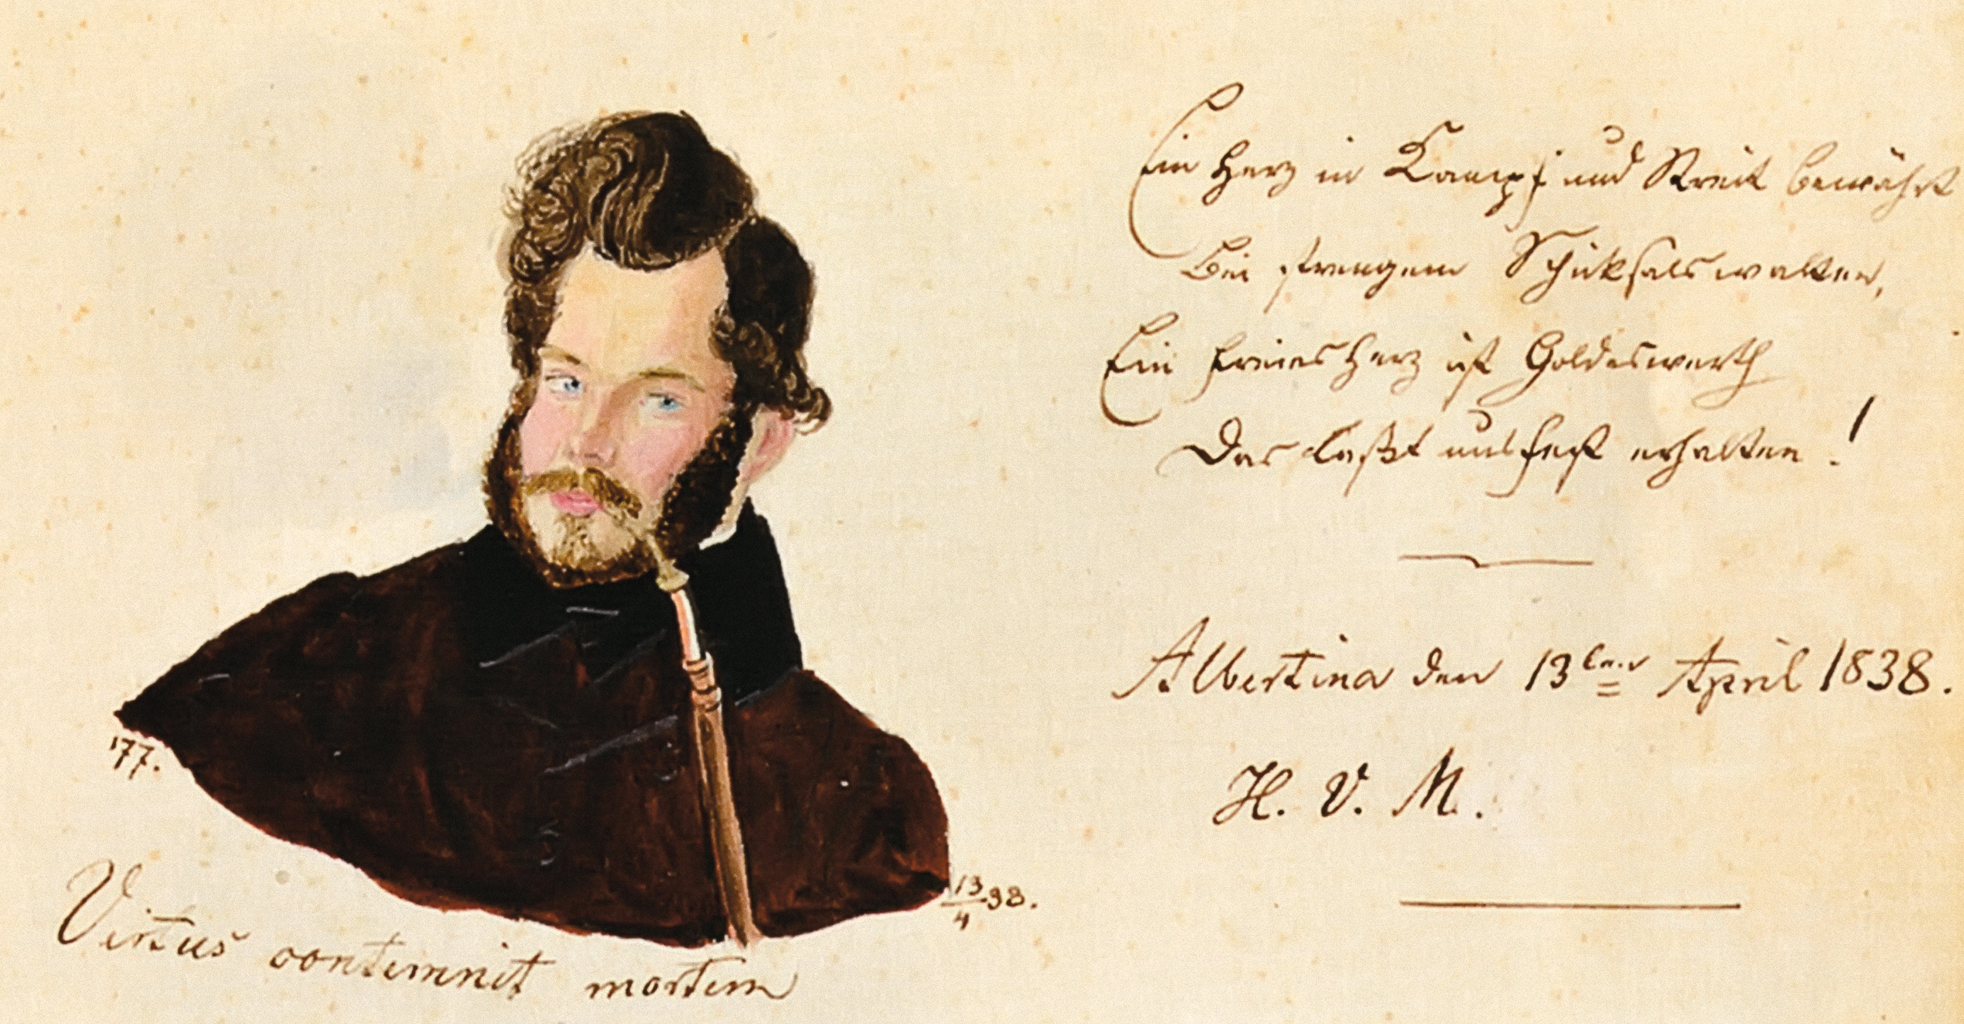 '77.
13/4 38.
Virtus contemnit mortem
Ein Herz in Kampf und Streit bewährt
Bei strengem Schicksals walten,
Ein freies Herz ist Goldeswerth
Das laßt uns fest erhalten !
Albertina den 13ten April 1838.
H. V. M.